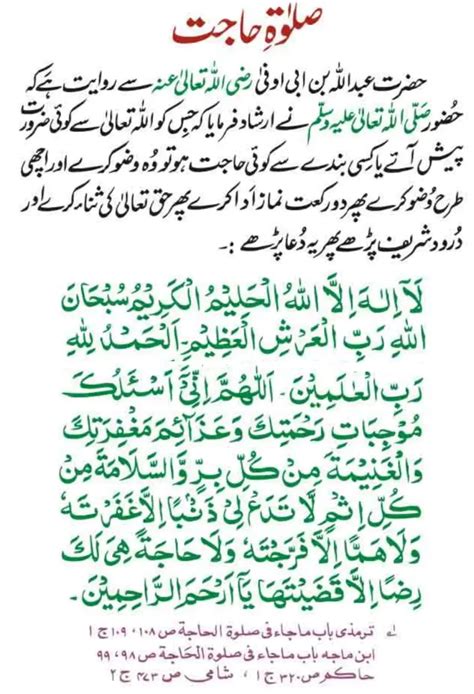 صلوٰۃِ حاجت
حضرت عبداللہ بن ابی اوفیٰ رضی اللہ تعالیٰ عنہ سے روایت ہے کہ
حُضور صَلّی اللہ تعالیٰ علیہ وسلّم نے ارشاد فرمایا کہ جس کو اللہ تعالیٰ سے کوئی ضرورت
پیش آئے یا کسِی بندے سے کوئی حاجت ہو تو وُہ وضو کرے اور اچھی
طرح وُضو کرے پھر دو رکعت نماز اَدا کرے پھر حق تعالیٰ کی ثناء کرے اور
دُرود شریف پڑھے پھر یہ دُعا پڑھے :۔
لَآ اِلٰہَ اِلَّا اللّٰہُ الْحَلِیْمُ الْکَرِیْمُ سُبْحَانَ
اللّٰہِ رَبِّ الْعَرْشِ الْعَظِیْمِ۔ اَلْحَمْدُ لِلّٰہِ
رَبِّ الْعَالَمِیْنَ۔ اَللّٰھُمَّ اِنِّیْٓ اَسْئَلُكَ
مُوْجِبَاتِ رَحْمَتِكَ وَعَزَآئِمَ مَغْفِرَتِكَ
وَالْغَنِیْمَةَ مِنْ کُلِّ بِرٍّ وَّالسَّلَامَةَ مِنْ
کُلِّ اِثْمٍ لَا تَدَعْ لِیْ ذَنْبًا اِلَّا غَفَرْتَهٗ
وَلَا هَمًّا اِلَّا فَرَّجْتَهٗ وَلَا حَاجَةً هِیَ لَكَ
رِضًا اِلَّا قَضَیْتَهَا یَآ اَرْحَمَ الرَّاحِمِیْنَ۔
لہ ترمذی باب ماجاء فی صلوة الحاجة ص ۱۰۸، ۱۰۹ ج ۱
ابن ماجه باب ماجاء فی صلوة الحَاجة ص ۹۸، ۹۹
حاکم ص ۳۲۰ ج ۱، شامی ص ۴۷۳ ج ۲